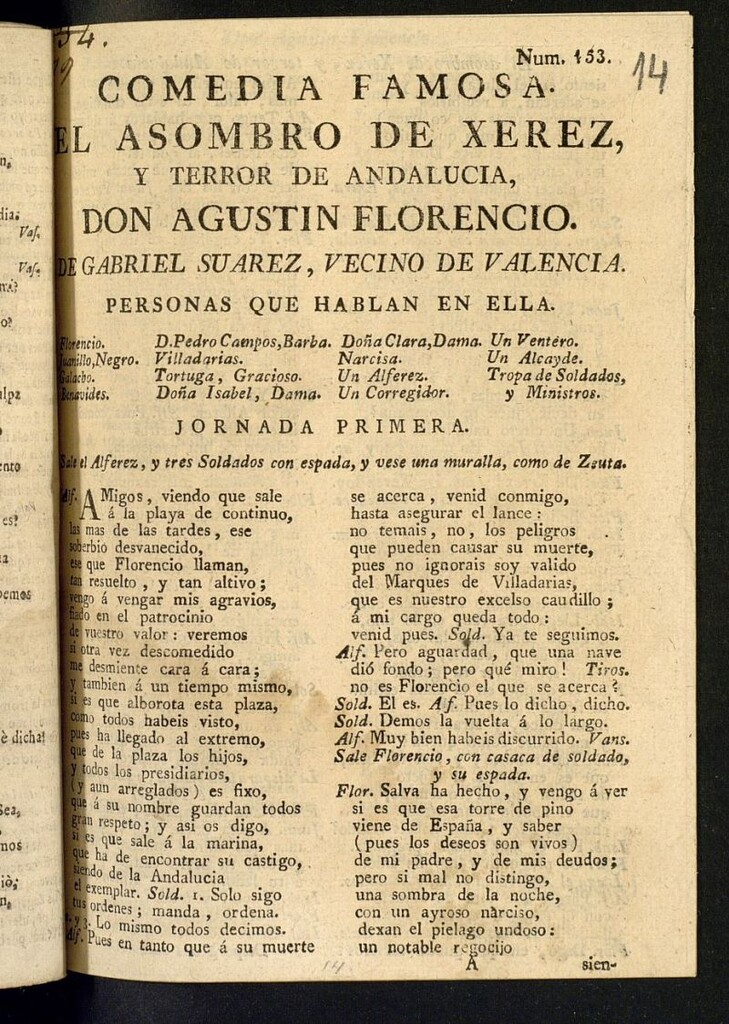 34.
Num. 153.
14
COMEDIA FAMOSA.
EL ASOMBRO DE XEREZ,
Y TERROR DE ANDALUCIA,
DON AGUSTIN FLORENCIO.
DE GABRIEL SUAREZ, VECINO DE VALENCIA.
PERSONAS QUE HABLAN EN ELLA.
Florencio. D. Pedro Campos, Barba. Doña Clara, Dama. Un Ventero.
Juanillo, Negro. Villadarias. Narcisa. Un Alcayde.
Galacho. Tortuga, Gracioso. Un Alferez. Tropa de Soldados,
Benavides. Doña Isabel, Dama. Un Corregidor. y Ministros.
JORNADA PRIMERA.
Sale el Alferez, y tres Soldados con espada, y vese una muralla, como de Zeuta.
Alf. AMigos, viendo que sale
á la playa de continuo,
las mas de las tardes, ese
soberbio desvanecido,
ese que Florencio llaman,
tan resuelto, y tan altivo;
vengo á vengar mis agravios,
fiado en el patrocinio
de vuestro valor: veremos
si otra vez descomedido
me desmiente cara á cara;
y tambien á un tiempo mismo,
si es que alborota esta plaza,
como todos habeis visto,
pues ha llegado al extremo,
que de la plaza los hijos,
y todos los presidiarios,
(y aun arreglados) es fixo,
que á su nombre guardan todos
gran respeto; y asi os digo,
si es que sale á la marina,
que ha de encontrar su castigo,
siendo de la Andalucia
el exemplar. Sold. 1. Solo sigo
tus ordenes; manda, ordena.
2. y 3. Lo mismo todos decimos.
Alf. Pues en tanto que á su muerte
se acerca, venid conmigo,
hasta asegurar el lance:
no temais, no, los peligros
que pueden causar su muerte,
pues no ignorais soy valido
del Marques de Villadarias,
que es nuestro excelso caudillo;
á mi cargo queda todo:
venid pues. Sold. Ya te seguimos.
Alf. Pero aguardad, que una nave
dió fondo; pero qué miro! Tiros.
no es Florencio el que se acerca?
Sold. El es. Alf. Pues lo dicho, dicho.
Sold. Demos la vuelta á lo largo.
Alf. Muy bien habeis discurrido. Vans.
Sale Florencio, con casaca de soldado,
y su espada.
Flor. Salva ha hecho, y vengo á ver
si es que esa torre de pino
viene de España, y saber
(pues los deseos son vivos)
de mi padre, y de mis deudos;
pero si mal no distingo,
una sombra de la noche,
con un ayroso narciso,
dexan el pielago undoso:
un notable regocijo
A sien-
14